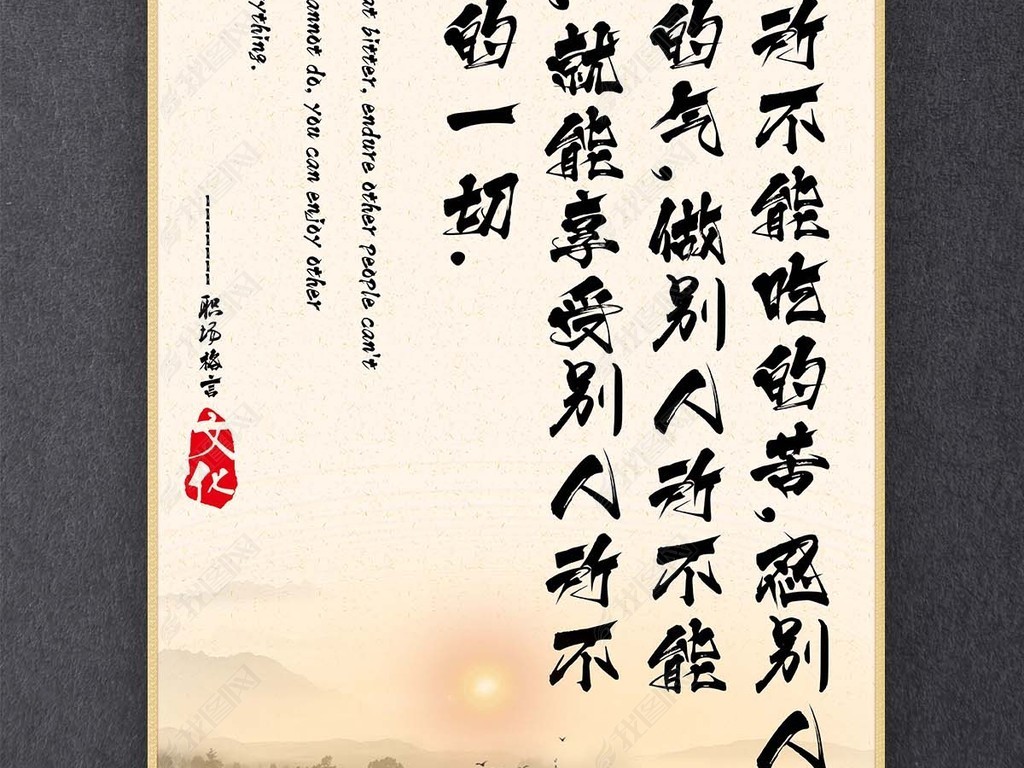 所不能吃的苦,忍别人
的气,做别人所不能
,就能享受别人所不
的一切.
at bitter, endure other people can't
annot do, you can enjoy other
ything.
--------职场格言
文化